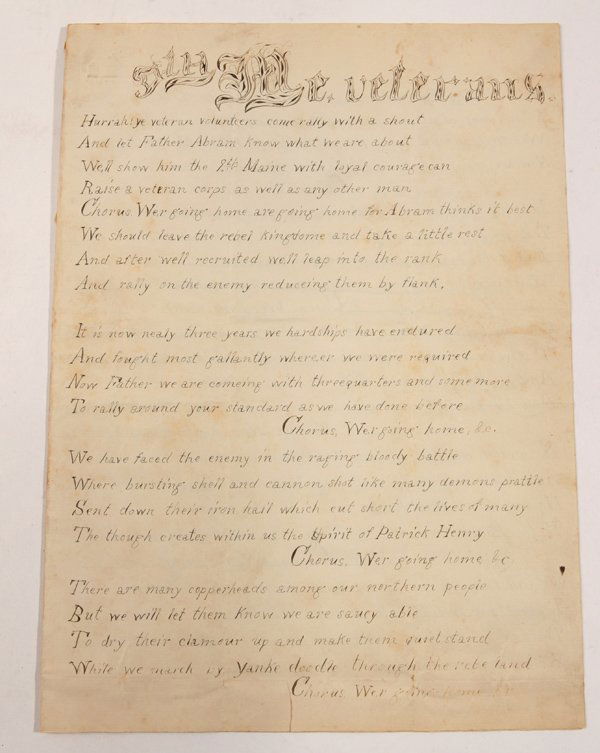 9th Me. veterans.
Hurrah! ye veteran volunteers come rally with a shout
And let Father Abram know what we are about
We,ll show him the 9th Maine with loyal courage can
Raise a veteran corps as well as any other man
Chorus, Wer going home are going home for Abram thinks it best
We should leave the rebel kingdome and take a little rest
And after well recruited we,ll leap into the rank
And rally on the enemy reduceing them by flank.
It is now nealy three years we hardships have endured
And fought most gallantly where,er we were required
Now Father we are comeing with threequarters and some more
To rally around your standard as we have done before
Chorus, Wer going home, &c.
We have faced the enemy in the raging bloody battle
Where bursting shell and cannon shot like many demons prattle
Sent down their iron hail which cut short the lives of many
The though creates within us the Spirit of Patrick Henry
Chorus, Wer going home, &c
There are many copperheads among our northern people
But we will let them know we are saucy able
To dry their clamour up and make them quiet stand
While we march by Yanke doodle through the rebe land
Chorus, Wer going home